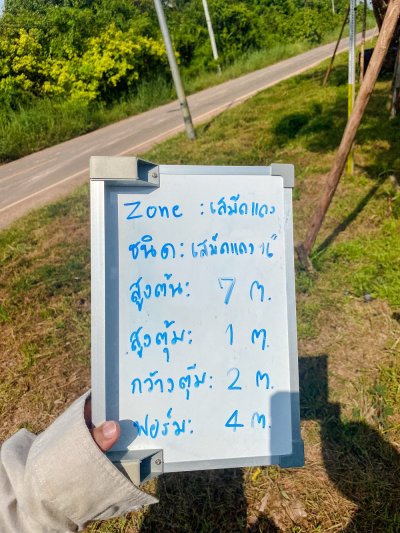 Zone : เสม็ดแดง
ชนิด : เสม็ดแดง 14"
สูงต้น : 7 ม.
สูงตุ้ม : 1 ม.
กว้างตุ้ม : 2 ม.
ฟอร์ม : 4 ม.